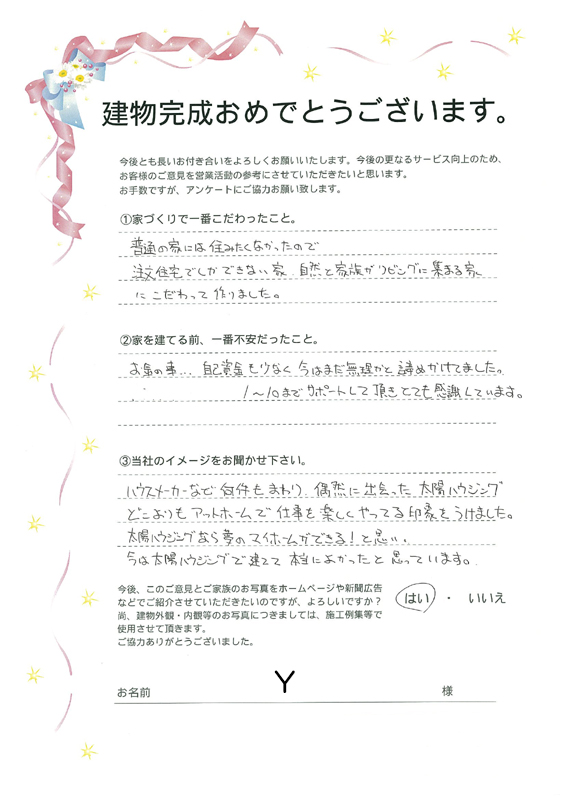 建物完成おめでとうございます。
今後とも長いお付き合いをよろしくお願いいたします。今後の更なるサービス向上のため、
お客様のご意見を営業活動の参考にさせていただきたいと思います。
お手数ですが、アンケートにご協力お願い致します。
①家づくりで一番こだわったこと。
普通の家には住みたくなかったので
注文住宅でしかできない家、自然と家族がリビングに集まる家
にこだわって作りました。
②家を建てる前、一番不安だったこと。
お金の事... 自己資金も少なく今はまだ無理かと諦めかけてました。
1〜10までサポートして頂きとても感謝しています。
③当社のイメージをお聞かせ下さい。
ハウスメーカーなど何件もまわり、偶然に出会った太陽ハウジング
どこよりもアットホームで仕事を楽しくやってる印象をうけました。
太陽ハウジングなら夢のマイホームができる!と思い、
今は太陽ハウジングで建てて本当によかったと思っています。
今後、このご意見とご家族のお写真をホームページや新聞広告
などでご紹介させていただきたいのですが、よろしいですか?
はい ・ いいえ
尚、建物外観・内観等のお写真につきましては、施工例集等で
使用させて頂きます。
ご協力ありがとうございました。
お名前 Y 様